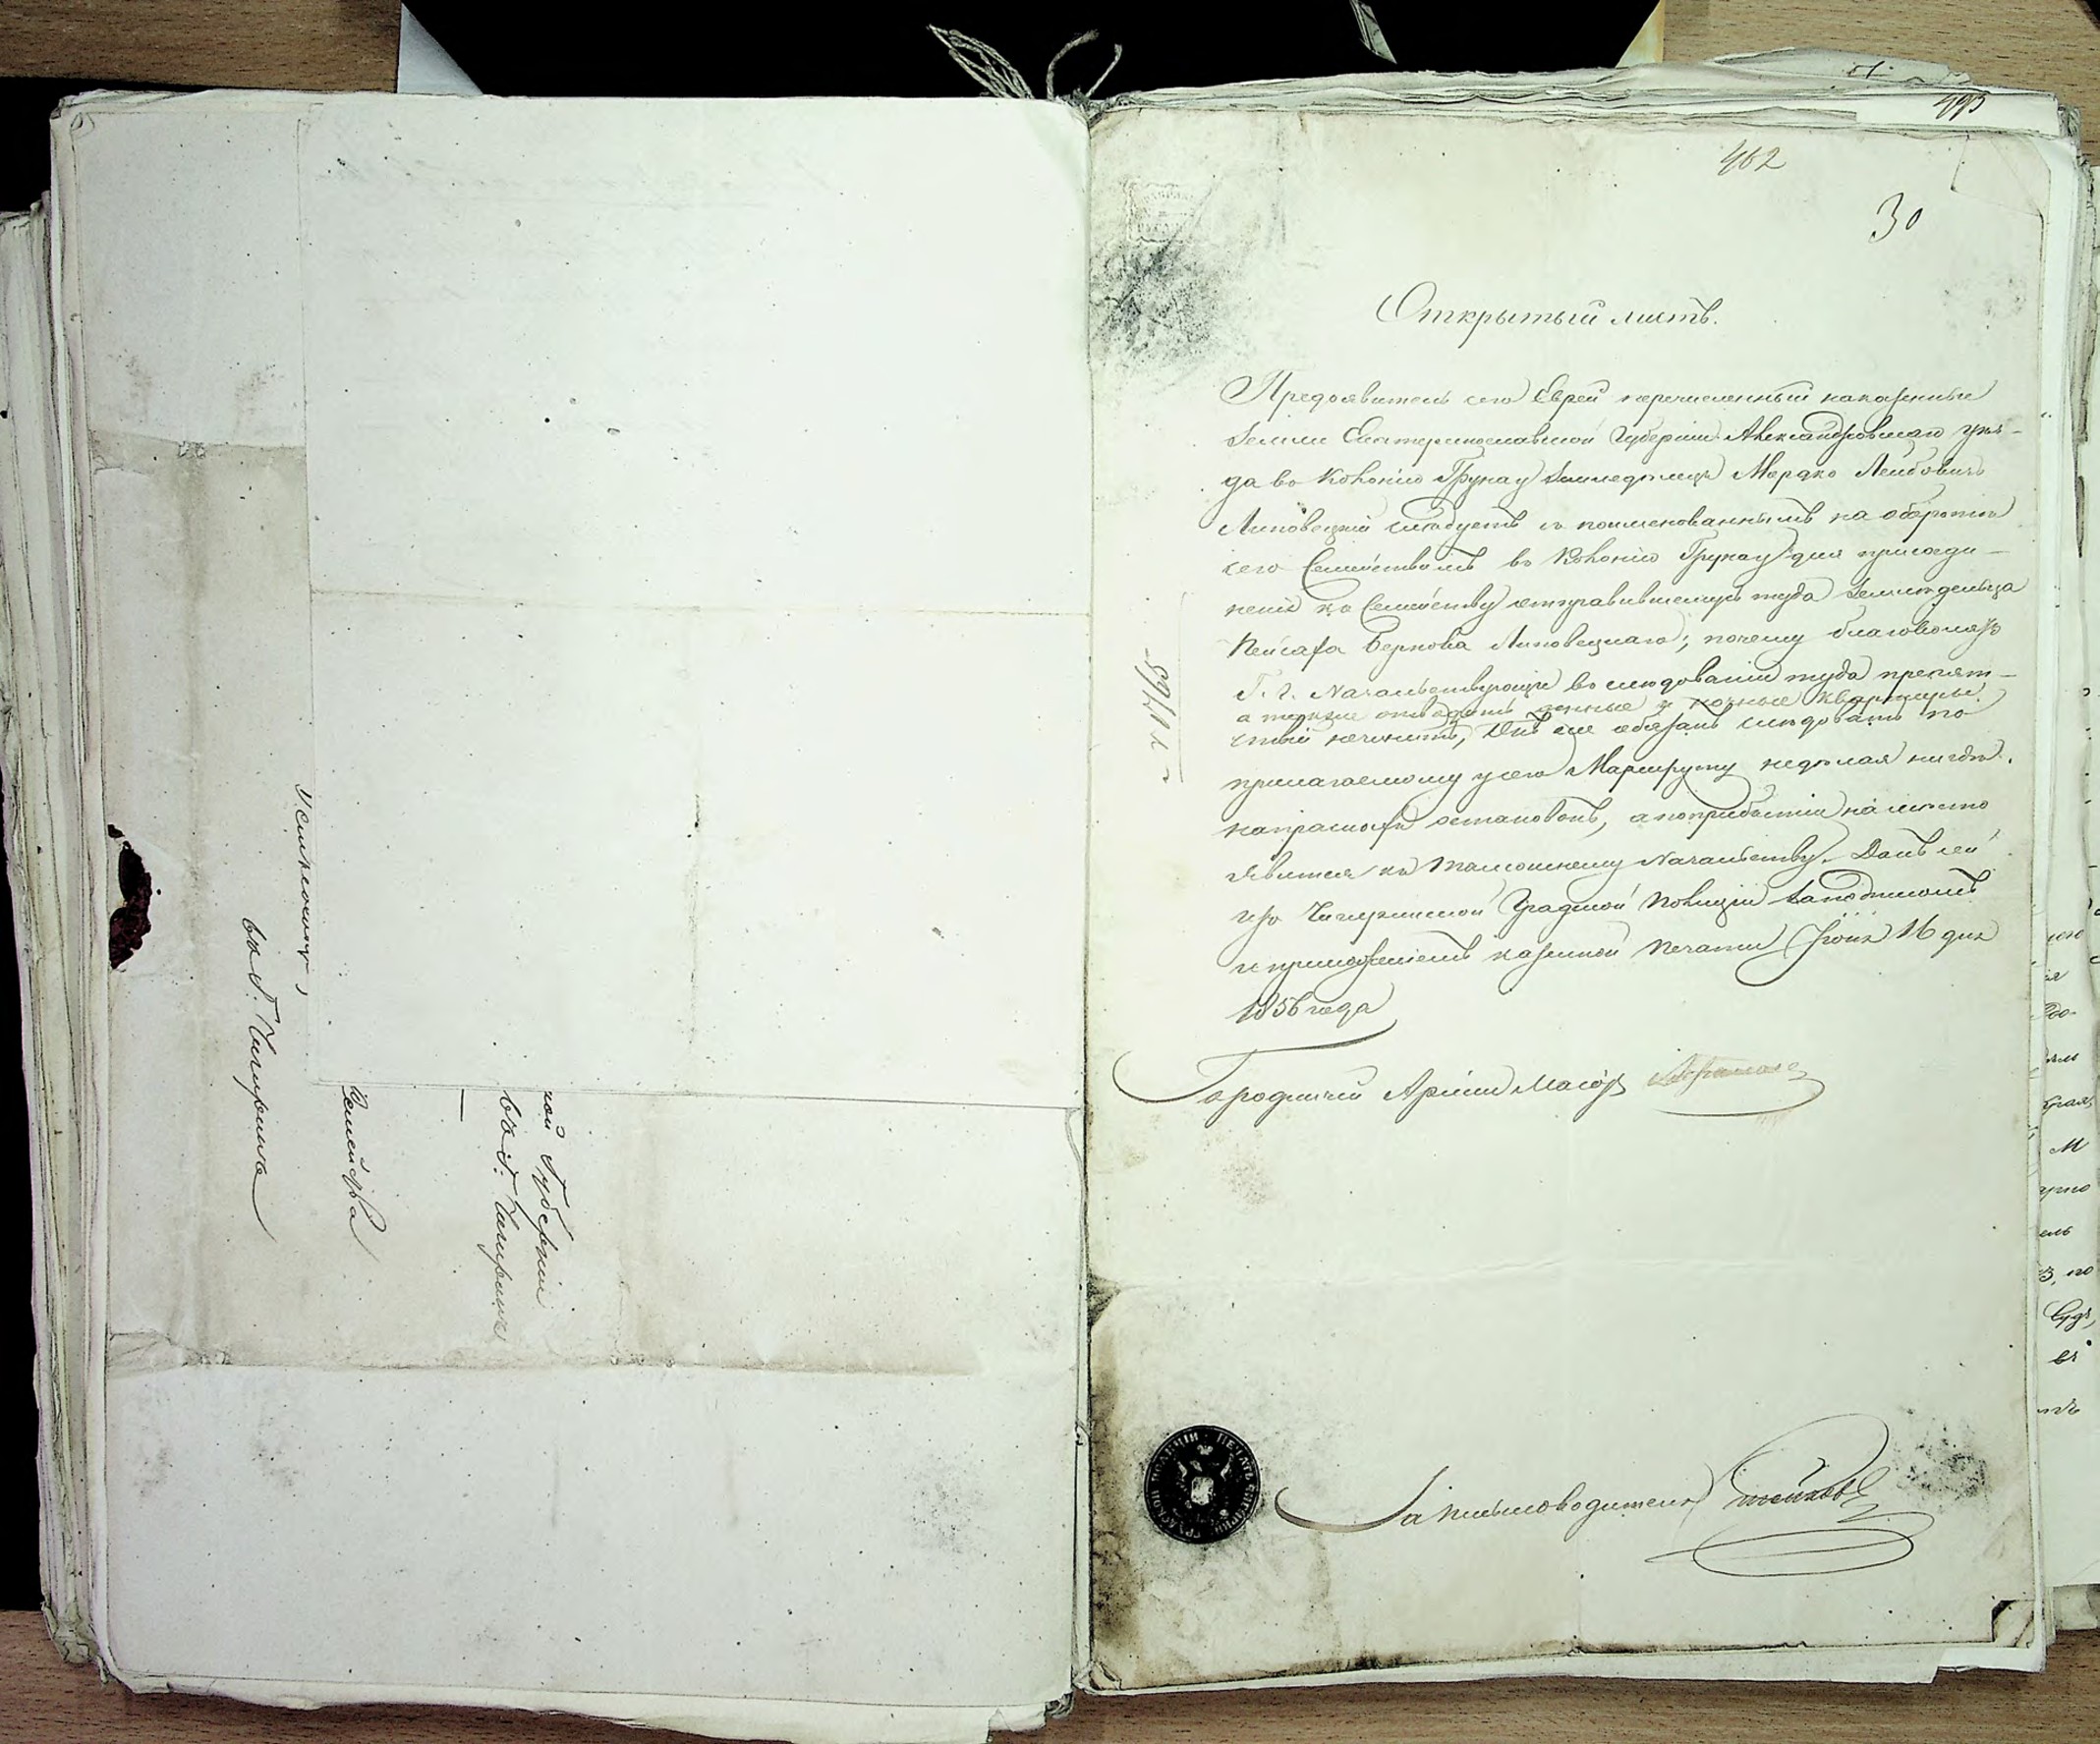 462
30
Открытый листъ.
Предъявитель сего Еврей перечисленный на казенные
земли Екатеринославской Губерніи Александровскаго уѣз-
да въ Колонію Грунау земледѣлецъ Мордко Лейбовичъ
Липовецкій слѣдуетъ съ поименованнымъ на оборотѣ
сего Семѣйствомъ въ Колонію Грунау для присоеди-
ненія къ Семѣйству отправившемуся туда Земледѣльца
Пейсаха Беркова Липовецкаго; почему благоволятъ
Г. г. Начальствующіе въ слѣдованіи туда препят-
а также отводить денные и ночные квартиры
ствій нечинить, Онъ же обязанъ слѣдовать по
прилагаемому у сего Маршруту недѣлая нигдѣ
напрасныхъ остановокъ, а поприбытіи на мѣсто
явится къ тамошнему Начальству. Данъ сей
изъ Чигиринской Градской Полиціи за подписомъ
и приложеніемъ казенной печати Іюня 16 дня
1856 года
Городничій Арміи Маіоръ
За письмоводителя
въ Г. Чигиринъ
Семейства
въ Г. Чигиринъ
кой Губерніи